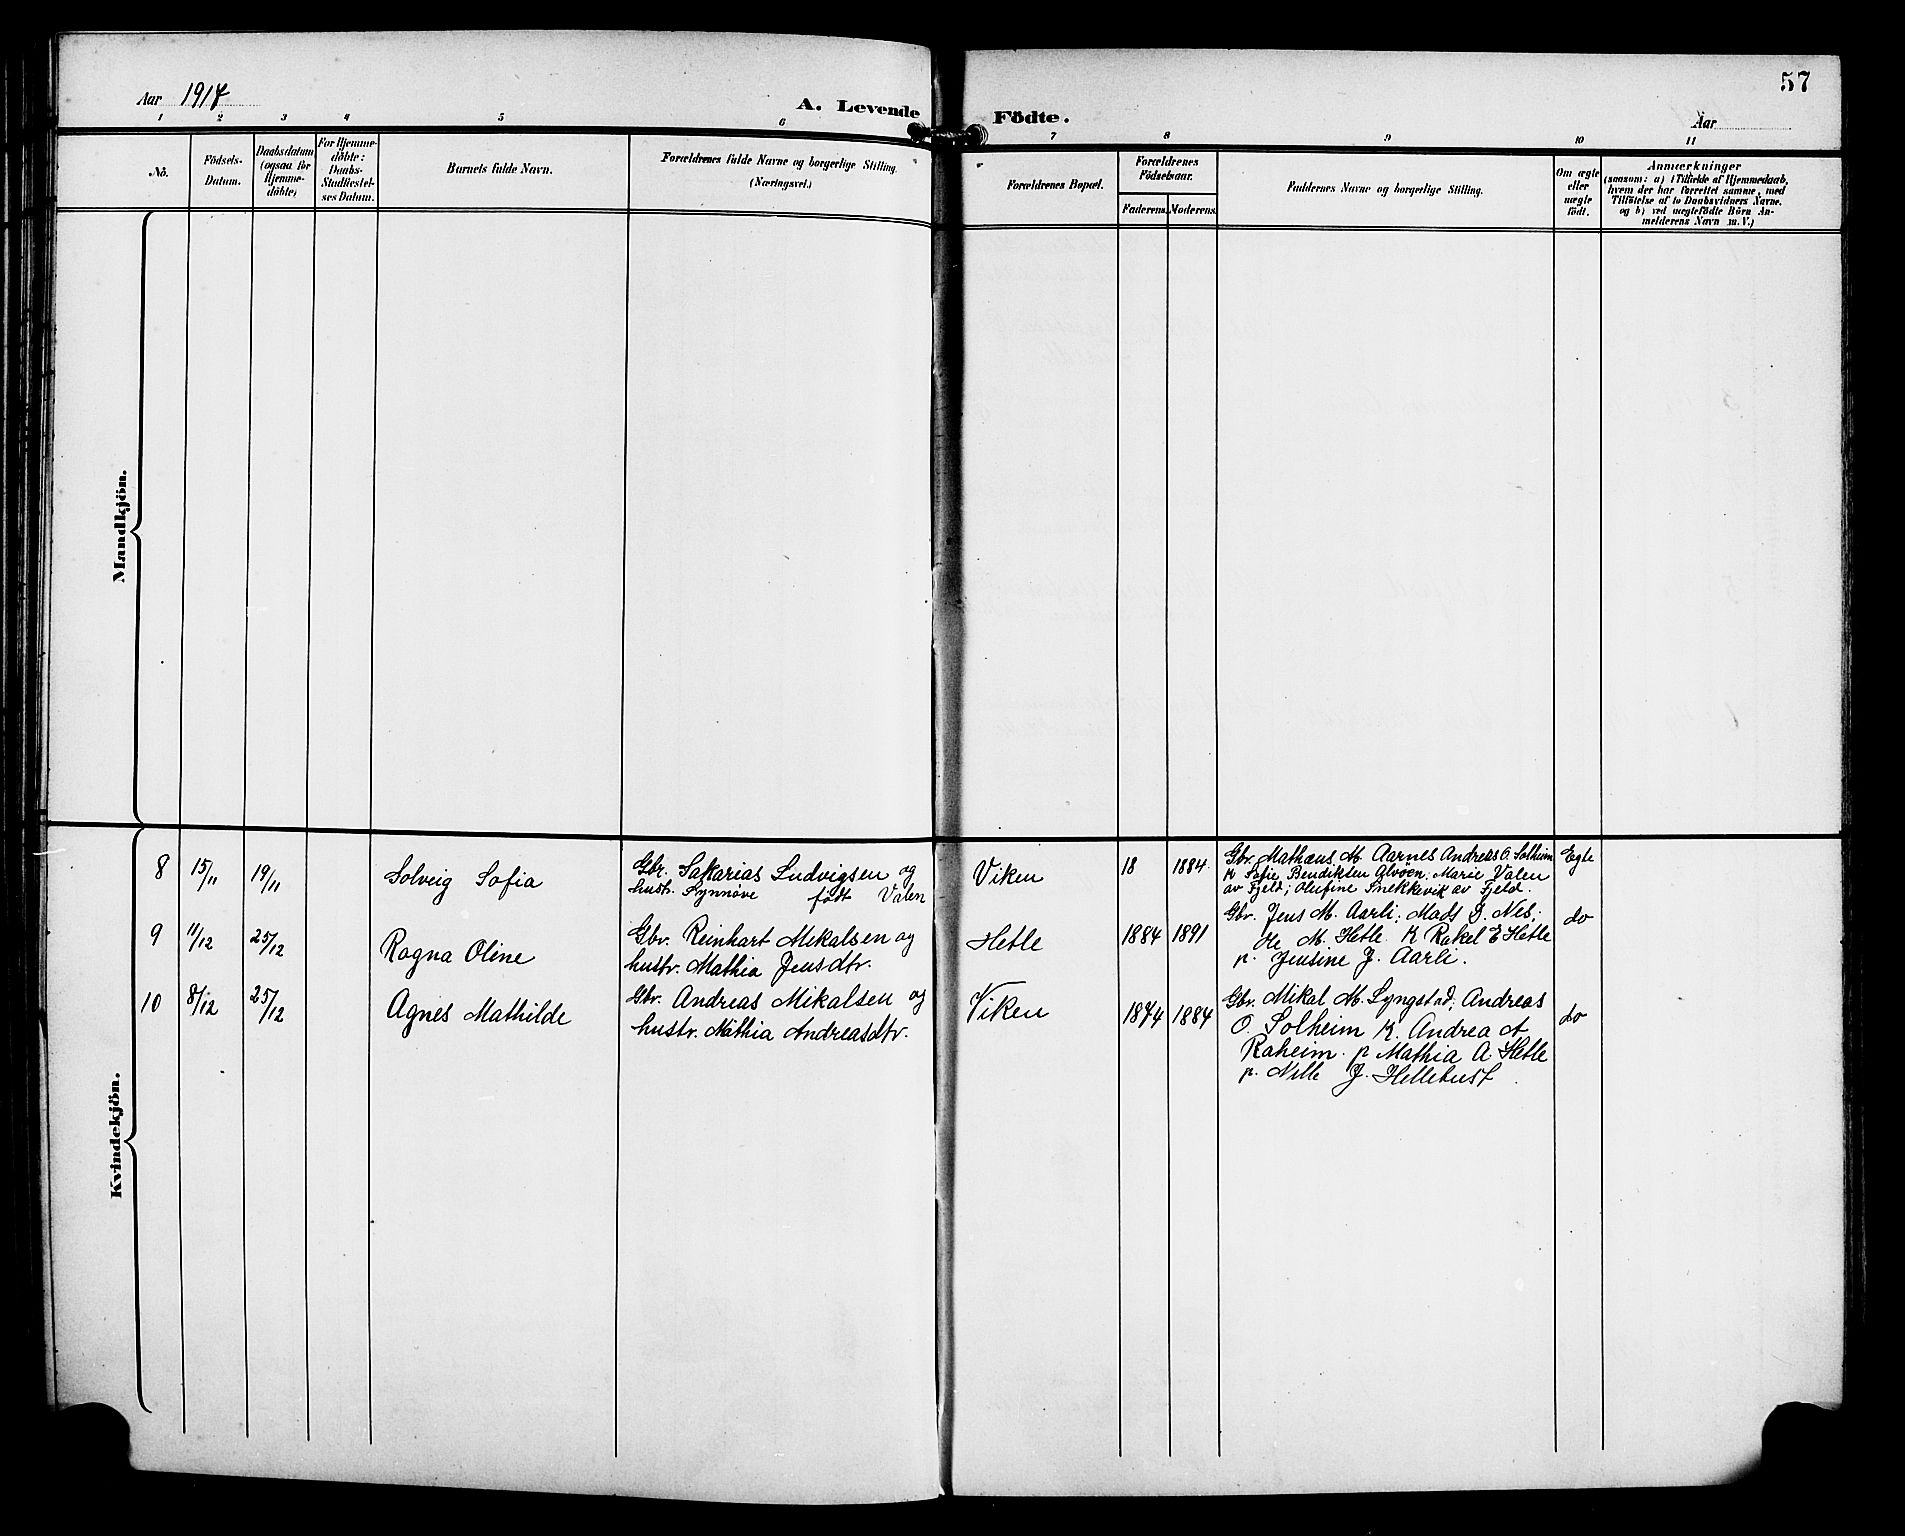 57
Aar 1917
A. Levende Födte.
Aar
1 2 3 4 5 6 7 8 9 10 11
No.
Födsels-
Datum.
Daabsdatum
(ogsaa for
Hjemme-
döbte)
For Hjemme-
döbte:
Daabs-
Stadfæstel-
ses Datum.
Barnets fulde Navn.
Forældrenes fulde Navne og borgerlige Stilling.
(Næringsvei.)
Forældrenes Bopæl.
Forældrenes
Födselsaar.
Faderens. Moderens.
Faddernes Navne og borgerlige Stilling.
Om ægte
eller
uægte
födt.
Anmærkninger
(saasom: a) i Tilfælde af Hjemmedaab,
hvem der har forrettet samme, med
Tilföielse af to Daabsvidners Navne.
og b) ved uægtefödte Börn An-
melderens Navn m. V.)
Mandkjön.
Kvindekjön.
8 15/11 19/11 Solveig Sofia
Gbr. Sakarias Ludvigsen og
hustr. Synnöve födt Valen
Viken 18 1884
Gbr. Mathæus M. Aarnes Andreas O. Solheim
K Sofie Bendiksen Alvöen. Marie Valen
av Fjeld; Olufine Snekkevik av Fjeld.
Egte
9 11/12 25/12 Ragna Oline
Gbr. Reinhart Mikalsen og
hustr. Mathia Jensdtr.
Hetle 1884 1891
Gbr. Jens M. Aarli; Mads D. Nes;
Ole M. Hetle. K Rakel E Hetle
p. Jensine J. Aarli.
do
10 8/12 25/12 Agnes Mathilde
Gbr. Andreas Mikalsen og
hustr. Mathia Andreasdtr.
Viken 1874 1884
Gbr. Mikal M. Lyngstad; Andreas
O. Solheim K. Andrea A
Raheim. p Mathia A. Hetle
p. Nille J. Hellebust.
do